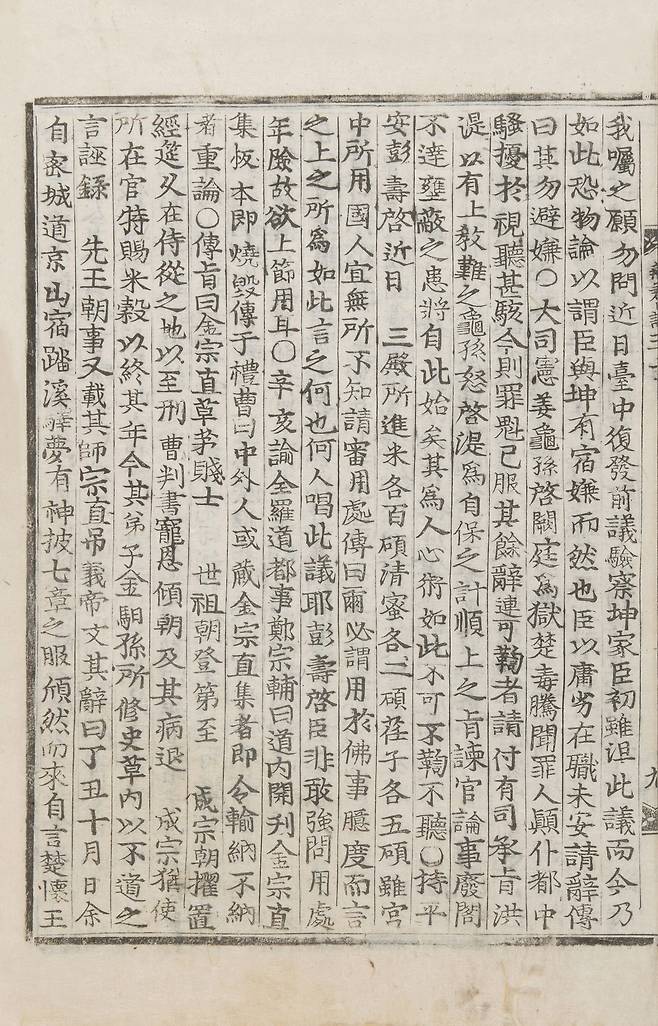 我嘱之願勿問近日臺中復發前議驗察坤家臣初雖沮此議而今乃
如此恐物論以謂臣與坤有宿嫌而然也臣以庸劣在職未安請辭傳
曰其勿避嫌○大司憲姜龜孫啓闕庭爲獄楚毒騰聞罪人顚仆都中
騷擾於視聽甚駭今則罪魁已服其餘辭連可鞫者請付有司承旨洪
湜以有上敎難之龜孫怒啓湜爲自保之計順上之旨諫官論事廢閣
不達壅蔽之患將自此始矣其爲人心術如此不可不鞫不聽○持平
安彭壽啓近日 三殿所進米各百碩淸蜜各二碩荏子各五碩雖宮
中所用國人宜無所不知請審用處傳曰爾必謂用於佛事臆度而言
之上之所爲如此言之何也何人唱此議耶彭壽啓臣非敢強問用處
年險故欲上節用耳○辛亥論全羅道都事鄭宗輔曰道內開刊金宗直
集板本即燒毀傳于禮曹曰中外人或藏金宗直集者即令輸納不納
者重論○傳旨曰金宗直草茅賤士 世祖朝登第至 成宗朝擢置
經筵久在侍從之地以至刑曹判書寵恩傾朝及其病退 成宗猶使
所在官特賜米穀以終其年今其弟子金馹孫所修史草內以不道之
言誣錄 先王朝事又載其師宗直吊義帝文其辭曰丁丑十月日余
自密城道京山宿踏溪驛夢有神披七章之服頎然而來自言楚懷王